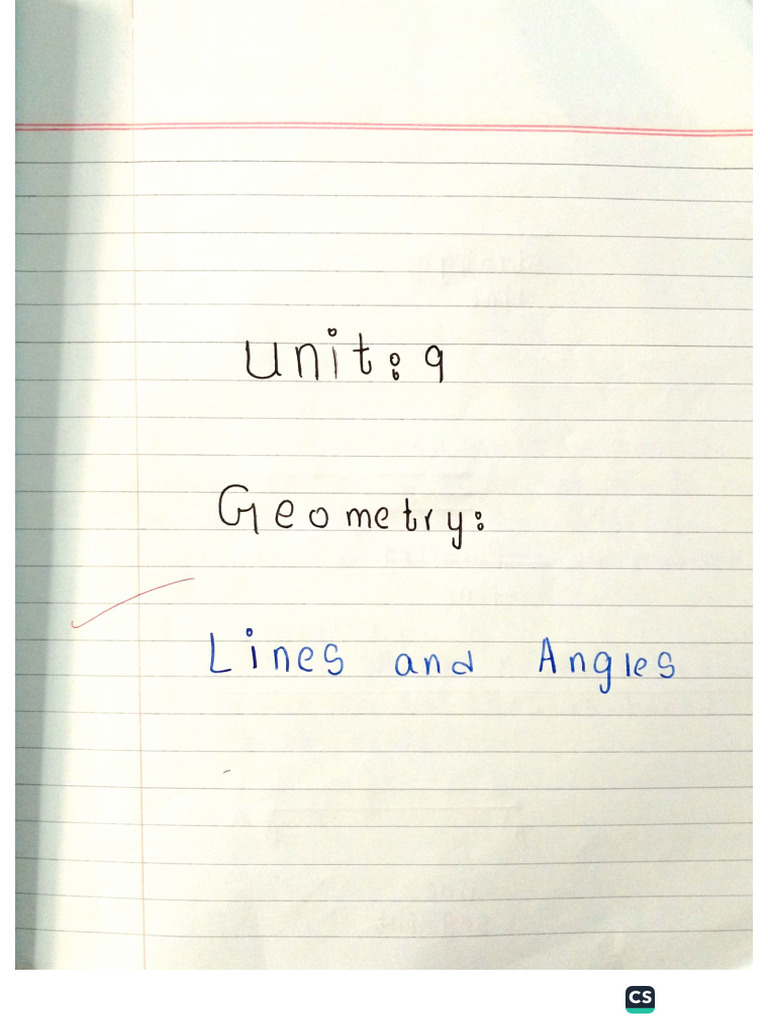 Unit: 9
Geometry:
Lines and Angles
CS